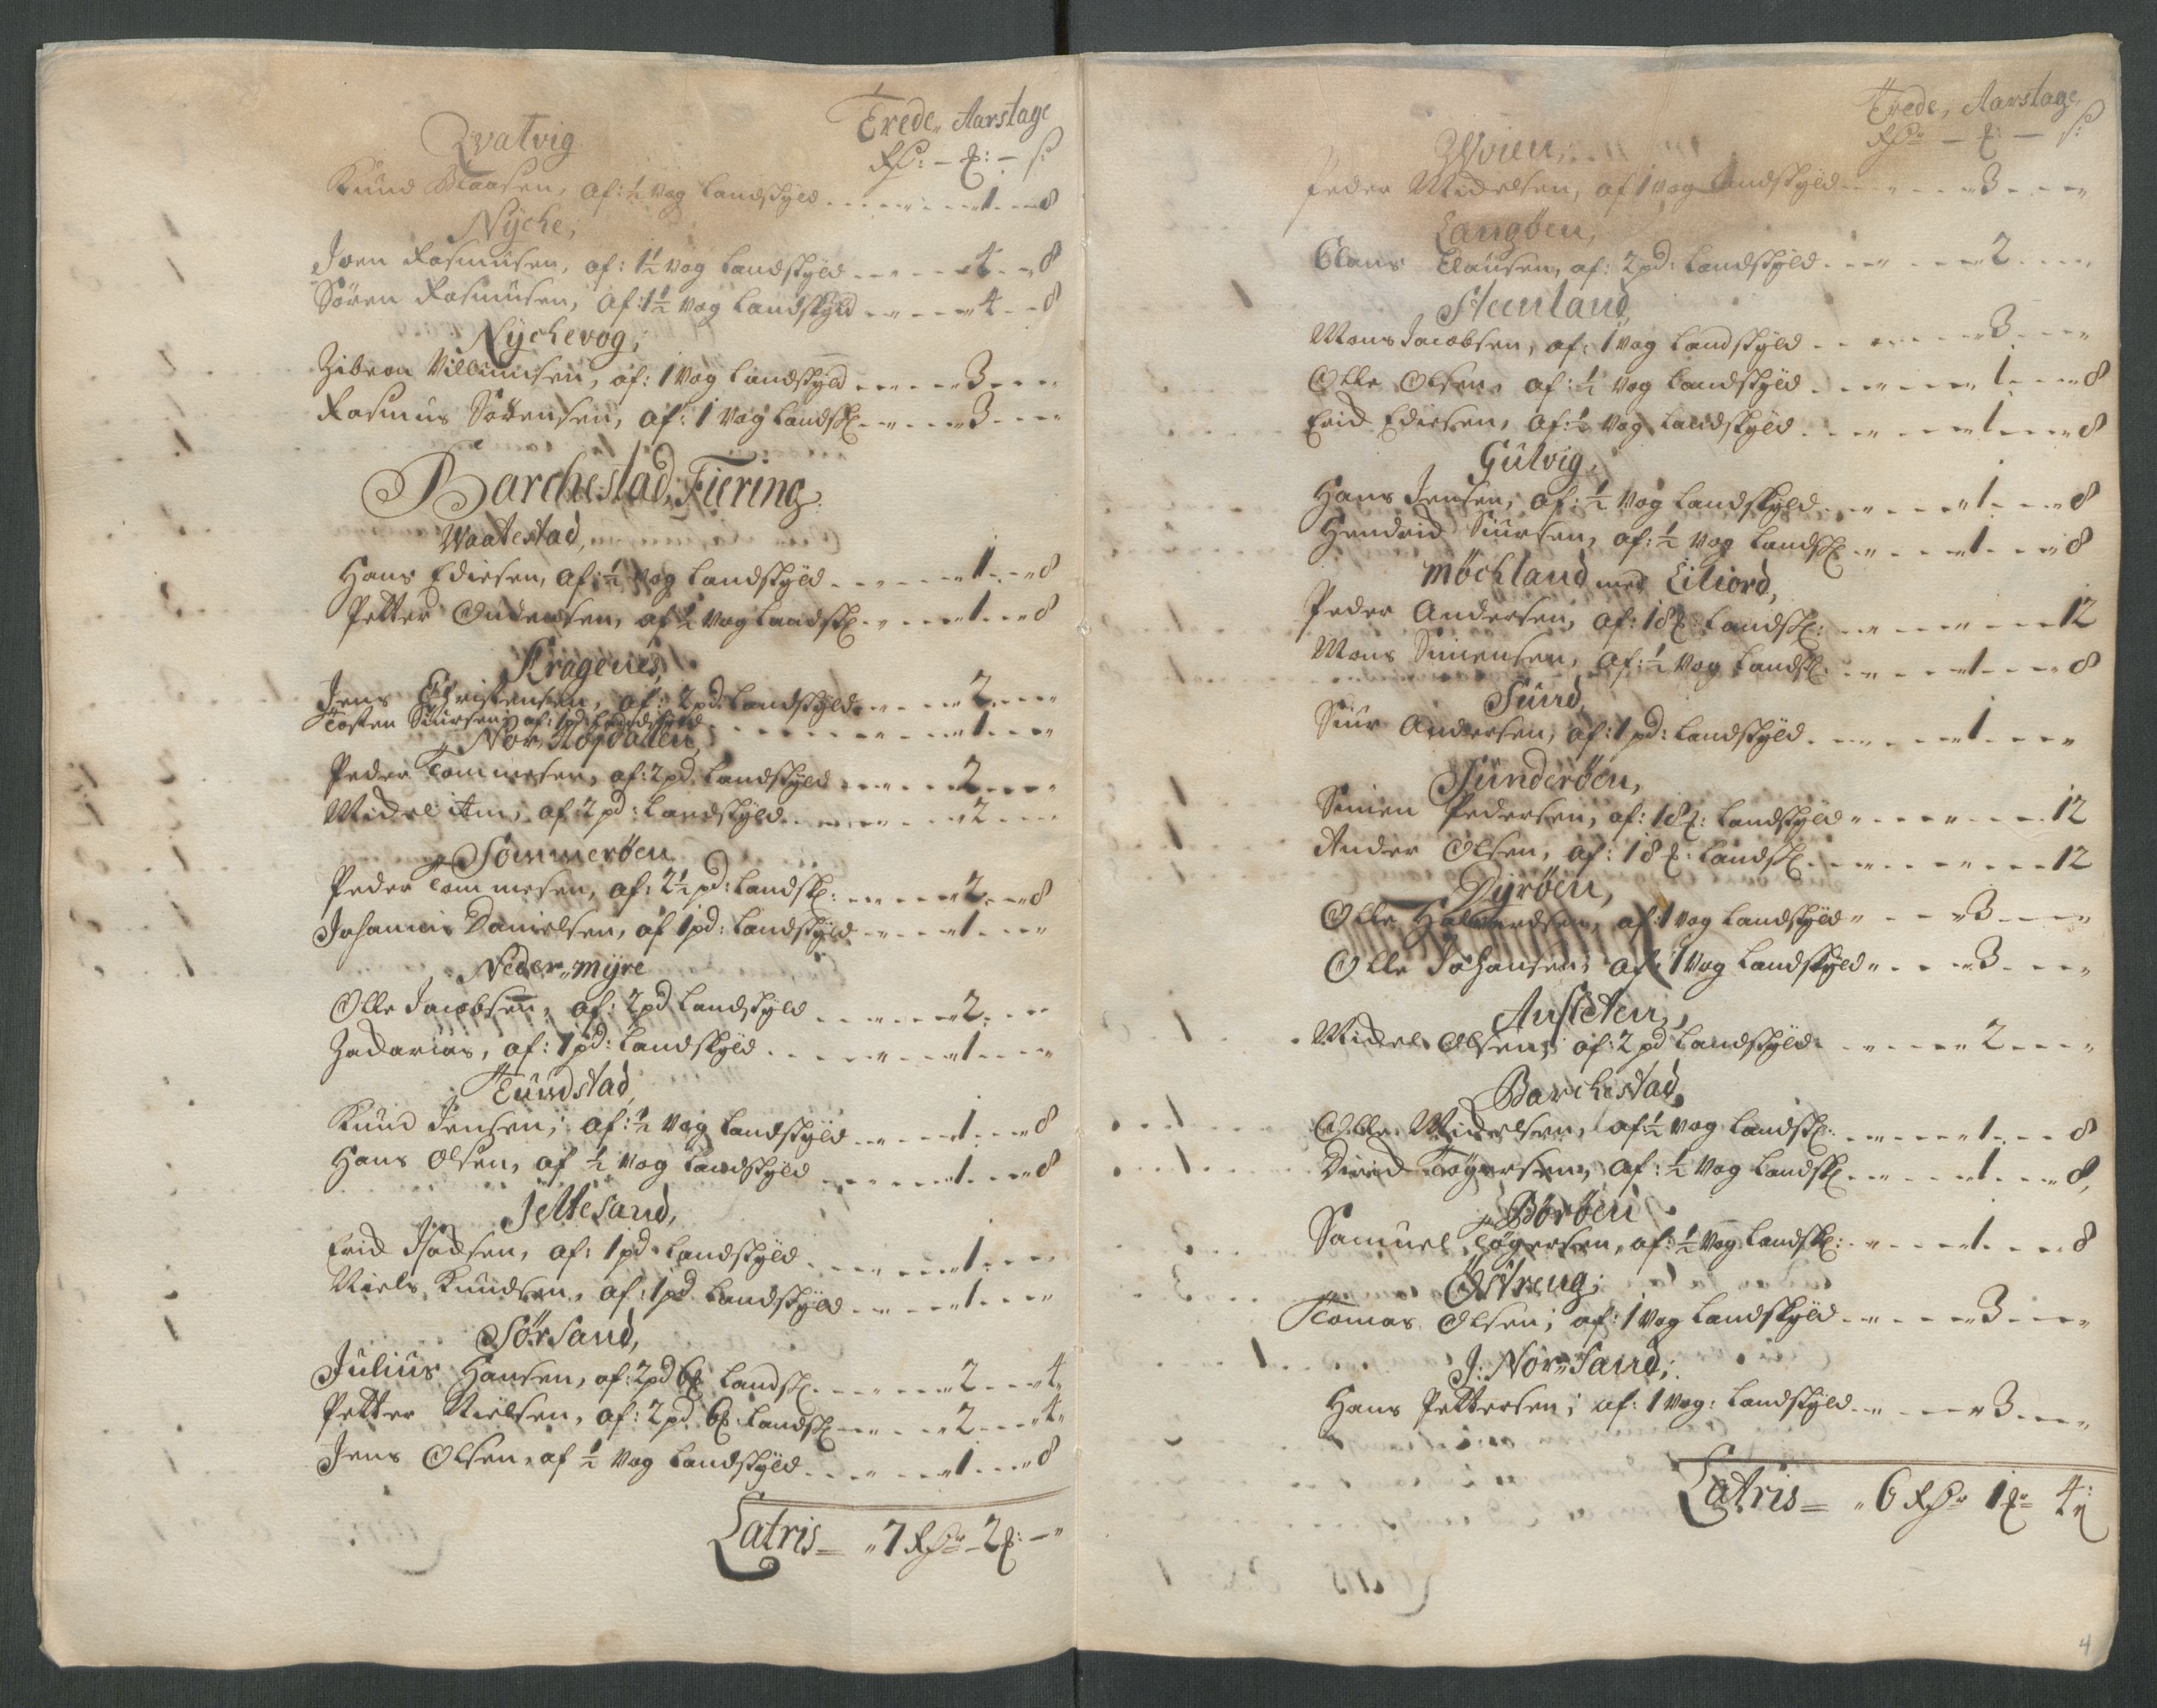 Trede, Aarstage
Rdr: – £: – s:
Qvatvig
Knud Claasen, af: ½ Vog Landskyld ... 1 ... 8
Nyche,
Joen Rasmusen, af: 1½ Vog Landskyld ... 4 ... 8
Sören Rasmusen, af: 1½ Vog Landskyld ... 4 ... 8
Nychevog,
Zibron Villumsen, af: 1 Vog Landskyld ... 3 ...
Rasmus Sörensen, af: 1 Vog Landsk: ... 3 ...
Barchestad, Fiering
Waatestad,
Hans Edisen, af: ½ Vog Landskyld ... 1 ... 8
Petter Andersen, af ½ Vog Landsk: ... 1 ... 8
Kragenes,
Jens Christensen, af: 2 pd: Landskyld ... 2 ...
Tosten Siursen, af: 1 pd: Landskyld ... 1 ...
Nor, Högdallen,
Peder Tommesen, af: 2 pd: Landskyld ... 2 ...
Michel itm, af 2 pd: Landskyld ... 2 ...
Sommeröen
Peder Tommesen, af: 2½ pd: Landsk: ... 2 ... 8
Johannis Danielsen, af 1 pd: Landskyld ... 1 ...
Neder, myre
Olle Jacobsen, af: 2 pd Landskyld ... 2 ...
Zacharias, af: 1 pd: Landskyld ... 1 ...
Tundstad,
Knud Jensen, af: ½ Vog Landskyld ... 1 ... 8
Hans Olsen, af ½ Vog Landskyld ... 1 ... 8
Jettesand,
Erich Isachsen, af: 1 pd: Landskyld ... 1 ...
Niels Knudsen, af: 1 pd Landskyld ... 1 ...
Sörsand,
Julius Hansen, af: 2 pd 6 £ Landsk: ... 2 ... 4
Petter Nielsen, af: 2 pd 6 £ Landsk: ... 2 ... 4
Jens Olsen, af ½ Vog Landskyld ... 1 ... 8
Latris = 7 Rdr – 2 £: –
Trede, Aarstage
Rdr – £: – s:
Peder Michelsen, af 1 Vog Landskyld ... 3 ...
Langöen,
Claus Clausen, af: 2 pd: Landskyld ... 2 ...
Steenland
Mons Jacobsen, af: 1 Vog Landskyld ... 3 ...
Olle Olsen, af: ½ Vog Landskyld ... 1 ... 8
Erich Edisen, af: ½ Vog Landskyld ... 1 ... 8
Gulvig,
Hans Jensen, af: ½ Vog Landskyld ... 1 ... 8
Hendrich Siursen, af: ½ Vog Landsk: ... 1 ... 8
Möchland med Liliord,
Peder Andersen, af: 18 £: Landsk: ... 12
Mons Simensen, af: ½ Vog Landsk: ... 1 ... 8
Sund,
Siur Andersen, af: 1 pd: Landskyld ... 1 ...
Sunderöen,
Simen Pedersen, af: 18 £: Landskyld ... 12
Ander Olsen, af: 18 £: Landsk: ... 12
Dyröen,
Olle Halvordsen, af: 1 Vog Landskyld ... 3 ...
Olle Johansen, af: 1 Vog Landskyld ... 3 ...
Ansleten,
Michel Olsen, af: 2 pd Landskyld ... 2 ...
Barchestad,
Olle Michelsen, af ½ Vog Landsk: ... 1 ... 8
Dirich Tögersen, af: ½ Vog Landsk: ... 1 ... 8
Böröen
Samuel Tögersen, af: ½ Vog Landsk: ... 1 ... 8
Östreng,
Tomas Olsen, af: 1 Vog Landskyld ... 3 ...
J: Nor, Sand,
Hans Pettersen, af: 1 Vog: Landskyld ... 3 ...
Latris = 6 Rdr 1 £ 4 s
4